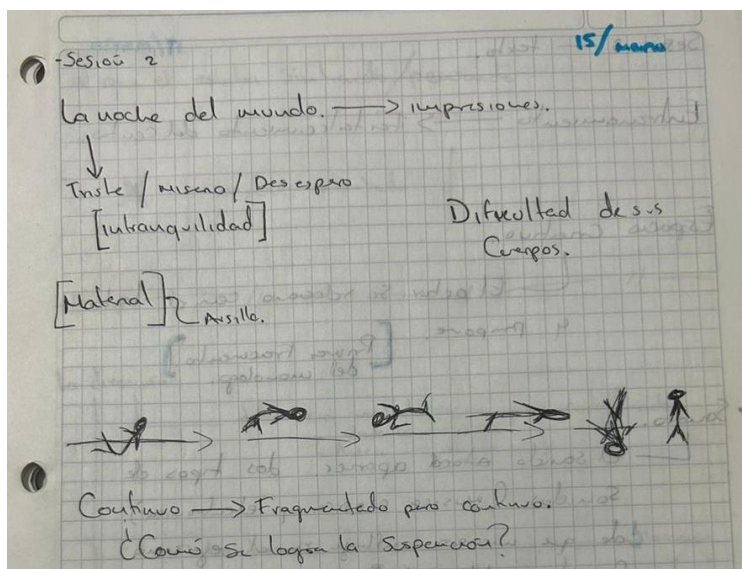 15/marzo
-Sesión 2
La noche del mundo. → impresiones.
Triste / / Desespero
[Intranquilidad]
Dificultad de sus
Cuerpos.
[Material]
Arsilla.
Continuo → Fragmentado pero continuo.
¿Comó se logra la suspención?